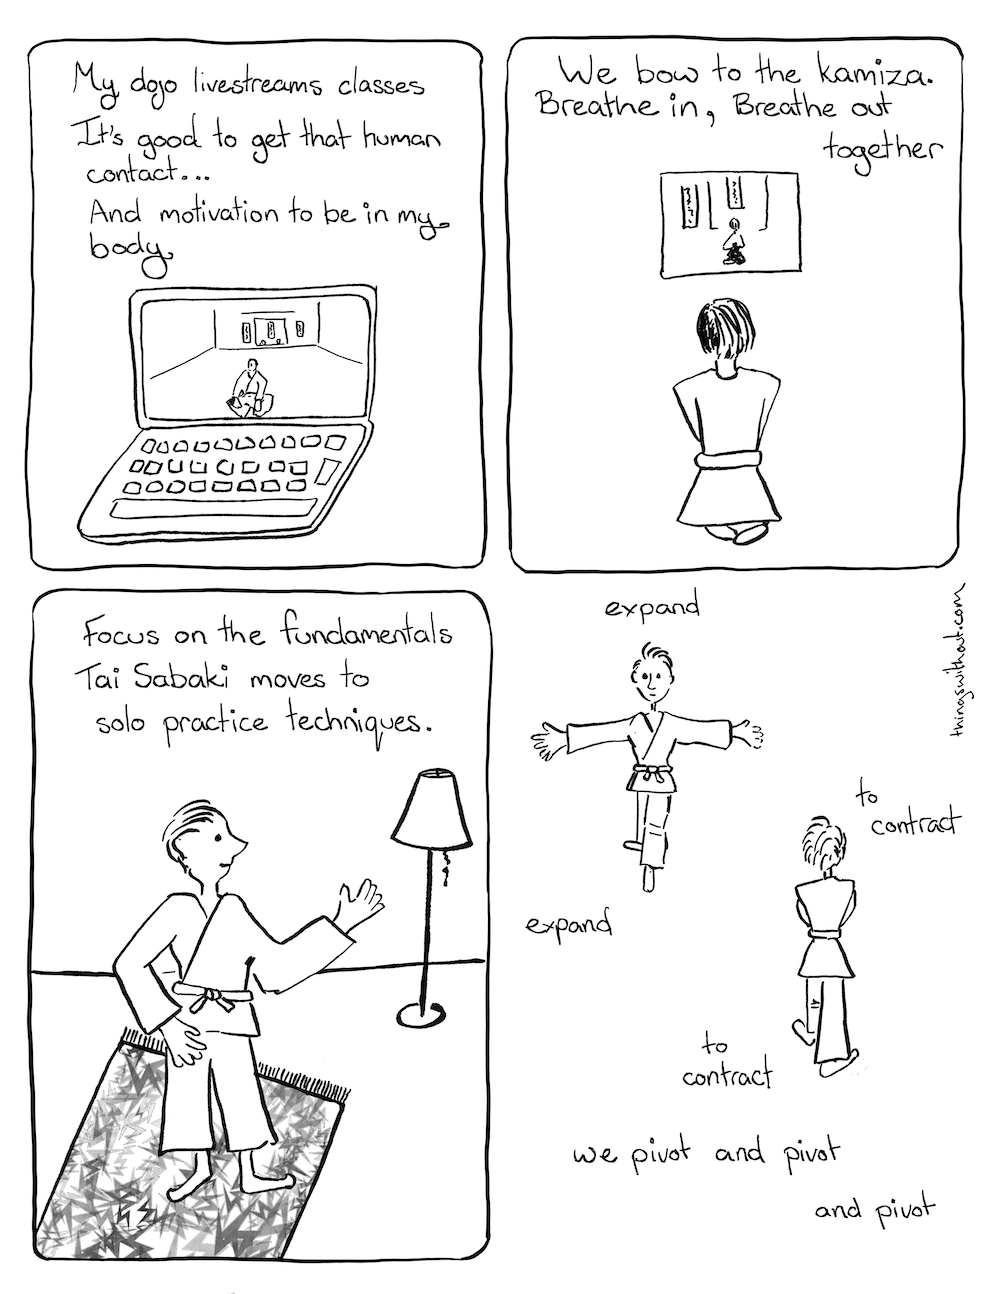 My dojo livestreams classes
It's good to get that human
contact...
And motivation to be in my
body
We bow to the kamiza.
Breathe in, Breathe out
together
Focus on the fundamentals
Tai Sabaki moves to
solo practice techniques.
expand
to
contract
expand
to
contract
we pivot and pivot
and pivot
thingswithout.com